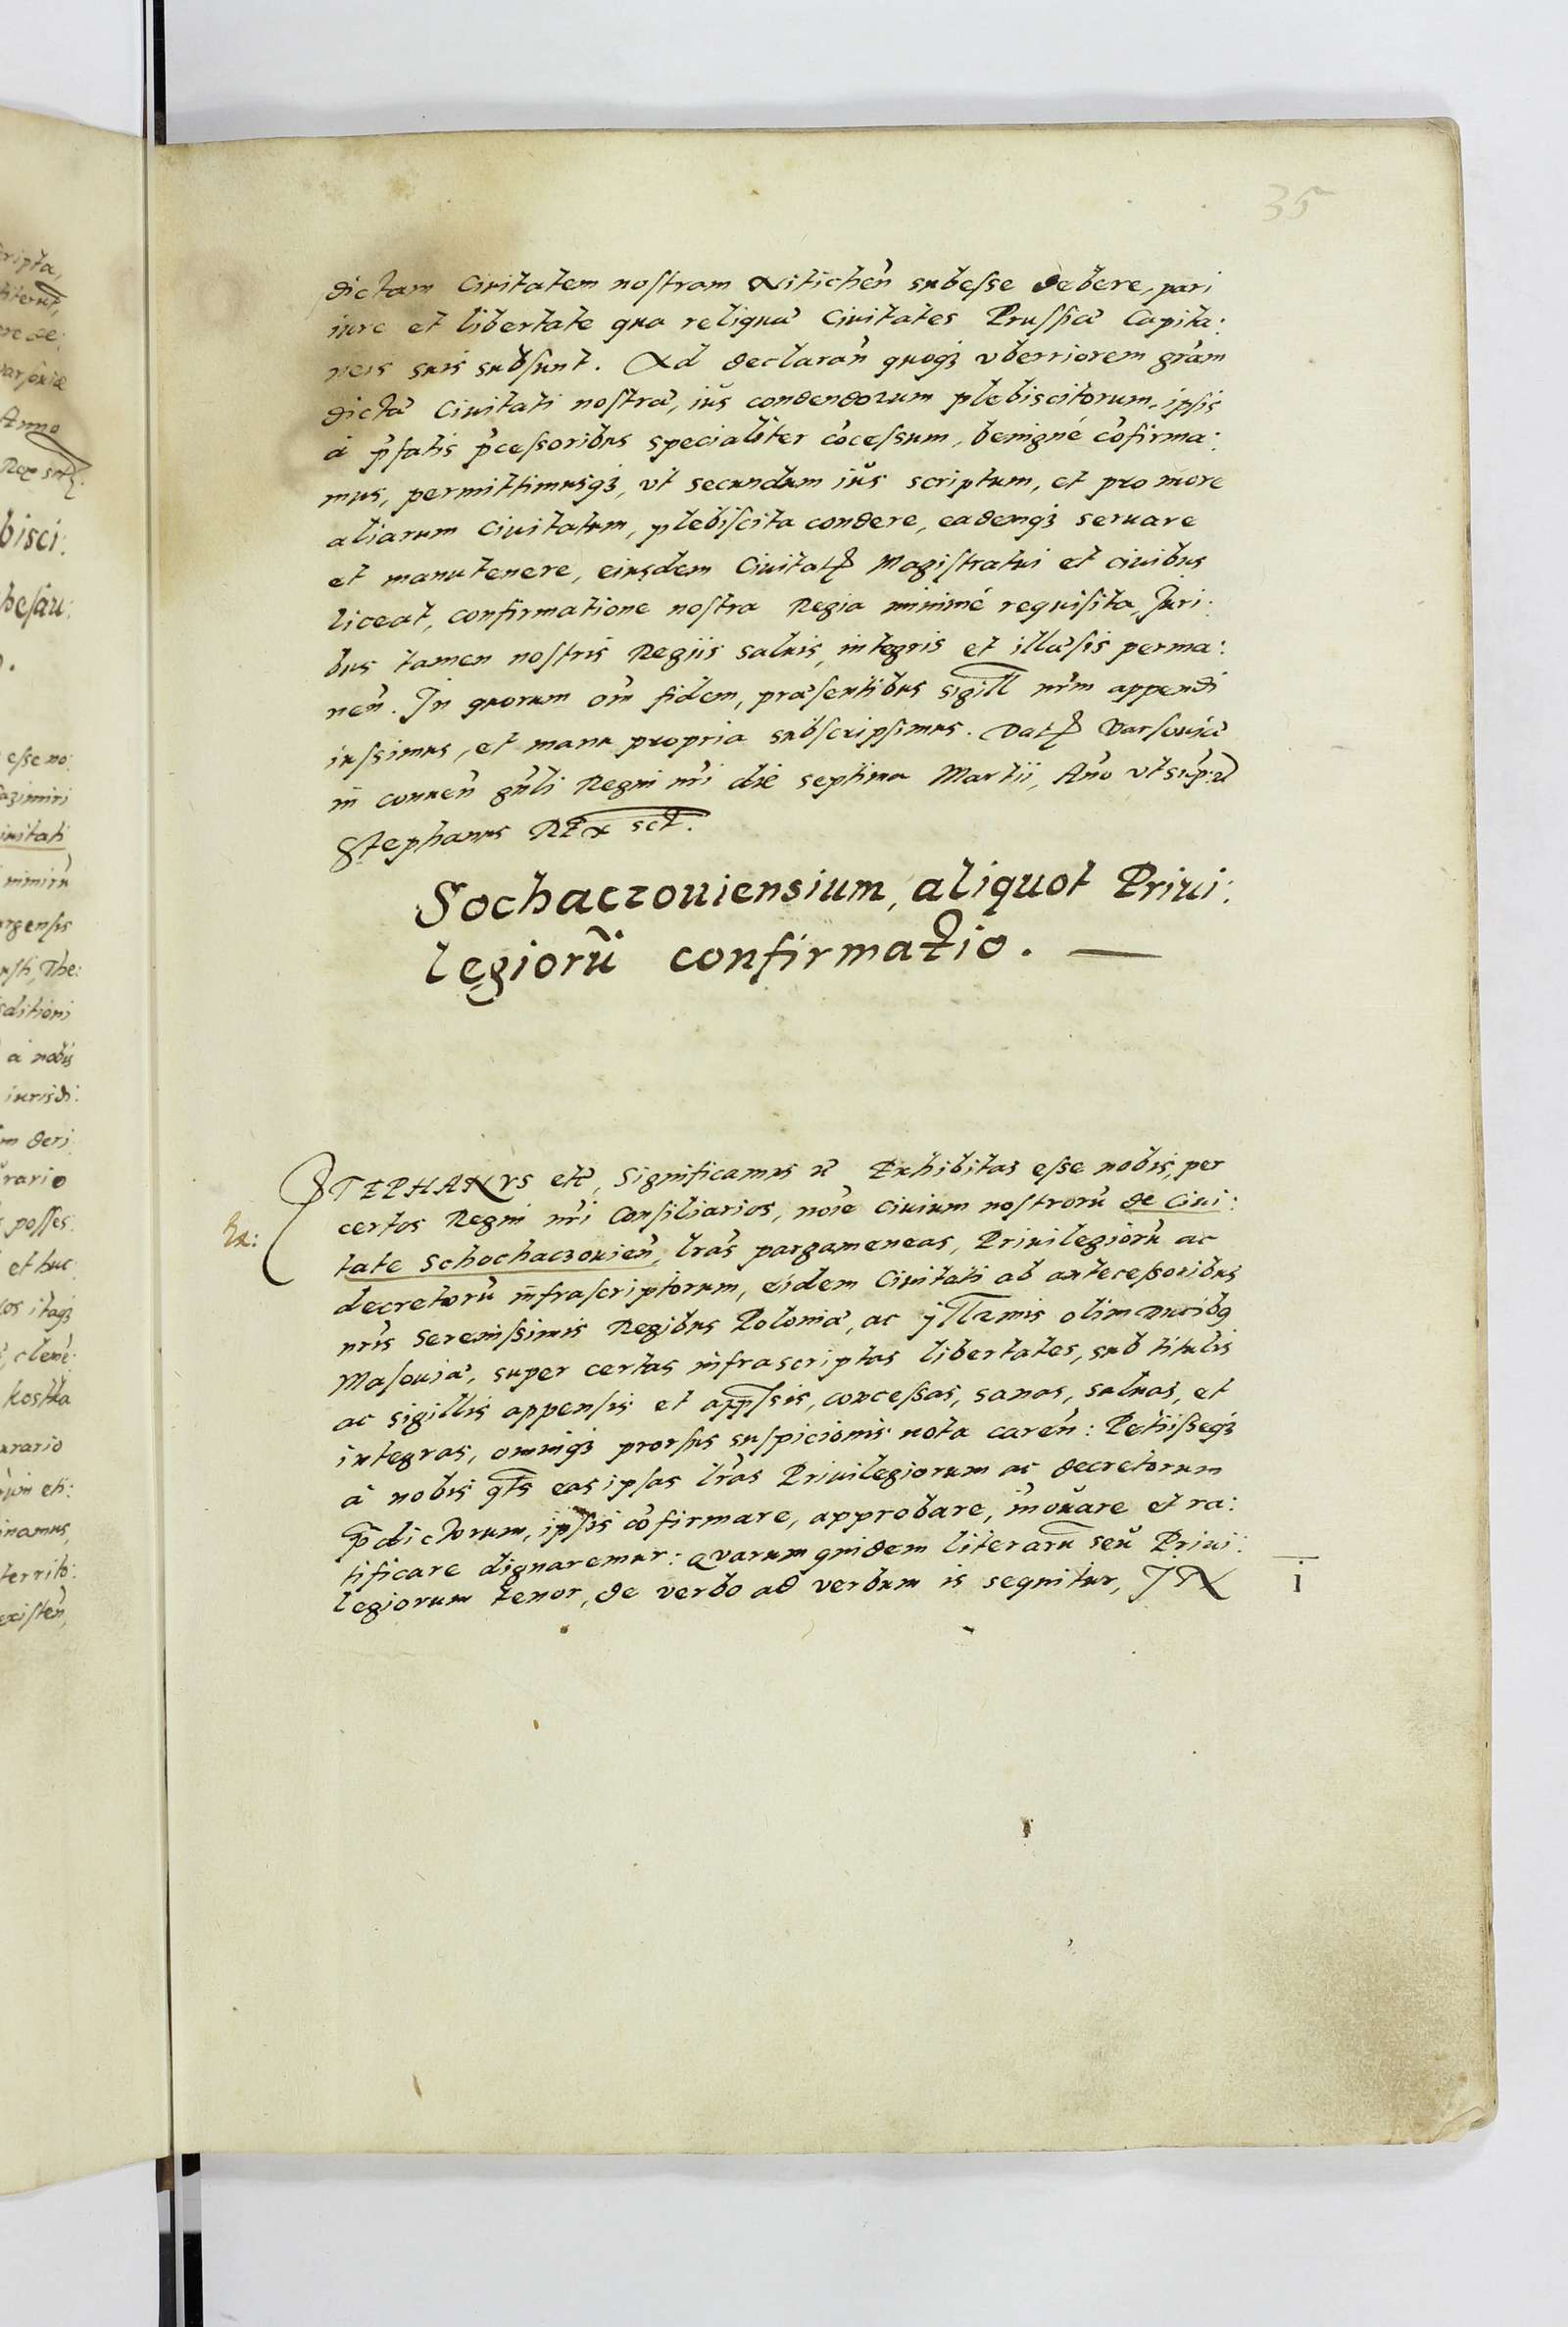 35
dictam Ciuitatem nostram Nitichen̄ subesse debere, pari
iure et libertate qua reliquæ Ciuitates Prussiæ Capita:
neis suis subsunt. Ad declaran̄ quoqȝ vberiorem grām
dictæ Ciuitati nostræ, ius condendorum plebiscitorum, ipsis
à p̄fatis p̄cessoribus specialiter cōcessum, benignè cōfirma:
mus, permittimusqȝ, vt secundum ius scriptum, et pro more
aliarum Ciuitatum, plebiscita condere, eademqȝ seruare
et manutenere, eiusdem Ciuitatꝭ Magistratui et ciuibus
liceat, confirmatione nostra Regia minimè requisita, Juri:
bus tamen nostris Regiis saluis, integris et illæsis perma:
nen̄. In quorum om̄ fidem, præsentibus sigill nr̄m appendi
iussimus, et manu propria subscripsimus. Datꝭ Varsouiæ
in conuen̄ gn̄li Regni nr̄i die septima Martii, An̄o vt sup̄:
Stephanus REx sct.
Sochaczouiensium, aliquot Priui:
legiorū confirmatio.
STEPHANVS etc̄, Significamus etc̄ Exhibitas esse nobis, per
certos Regni nr̄i Consiliarios, noīe ciuium nostrorū de Ciui:
Ex:
tate Schochaczouien̄, lrās pargameneas, Priuilegiorū ac
decretorū infrascriptorum, eidem Ciuitati ab antecessoribus
nr̄is Serenissimis Regibus Poloniæ, ac Jllr̄mis olim Ducibꝯ
Masouiæ, super certas infrascriptas libertates, sub titulis
ac sigillis appensis et app̄ssis, concessas, sanas, saluas, et
integras, omniqȝ prorsus suspicionis nota caren̄: Petiisseqȝ
à nobis qt̄s eas ipsas lrās Priuilegiorum ac decretorum
p̄dictorum, ipsis cōfirmare, approbare, in̄ouare et ra:
tificare dignaremur: Quarum quidem literarū seu Priui:
legiorum tenor, de verbo ad verbum is sequitur, JN
1